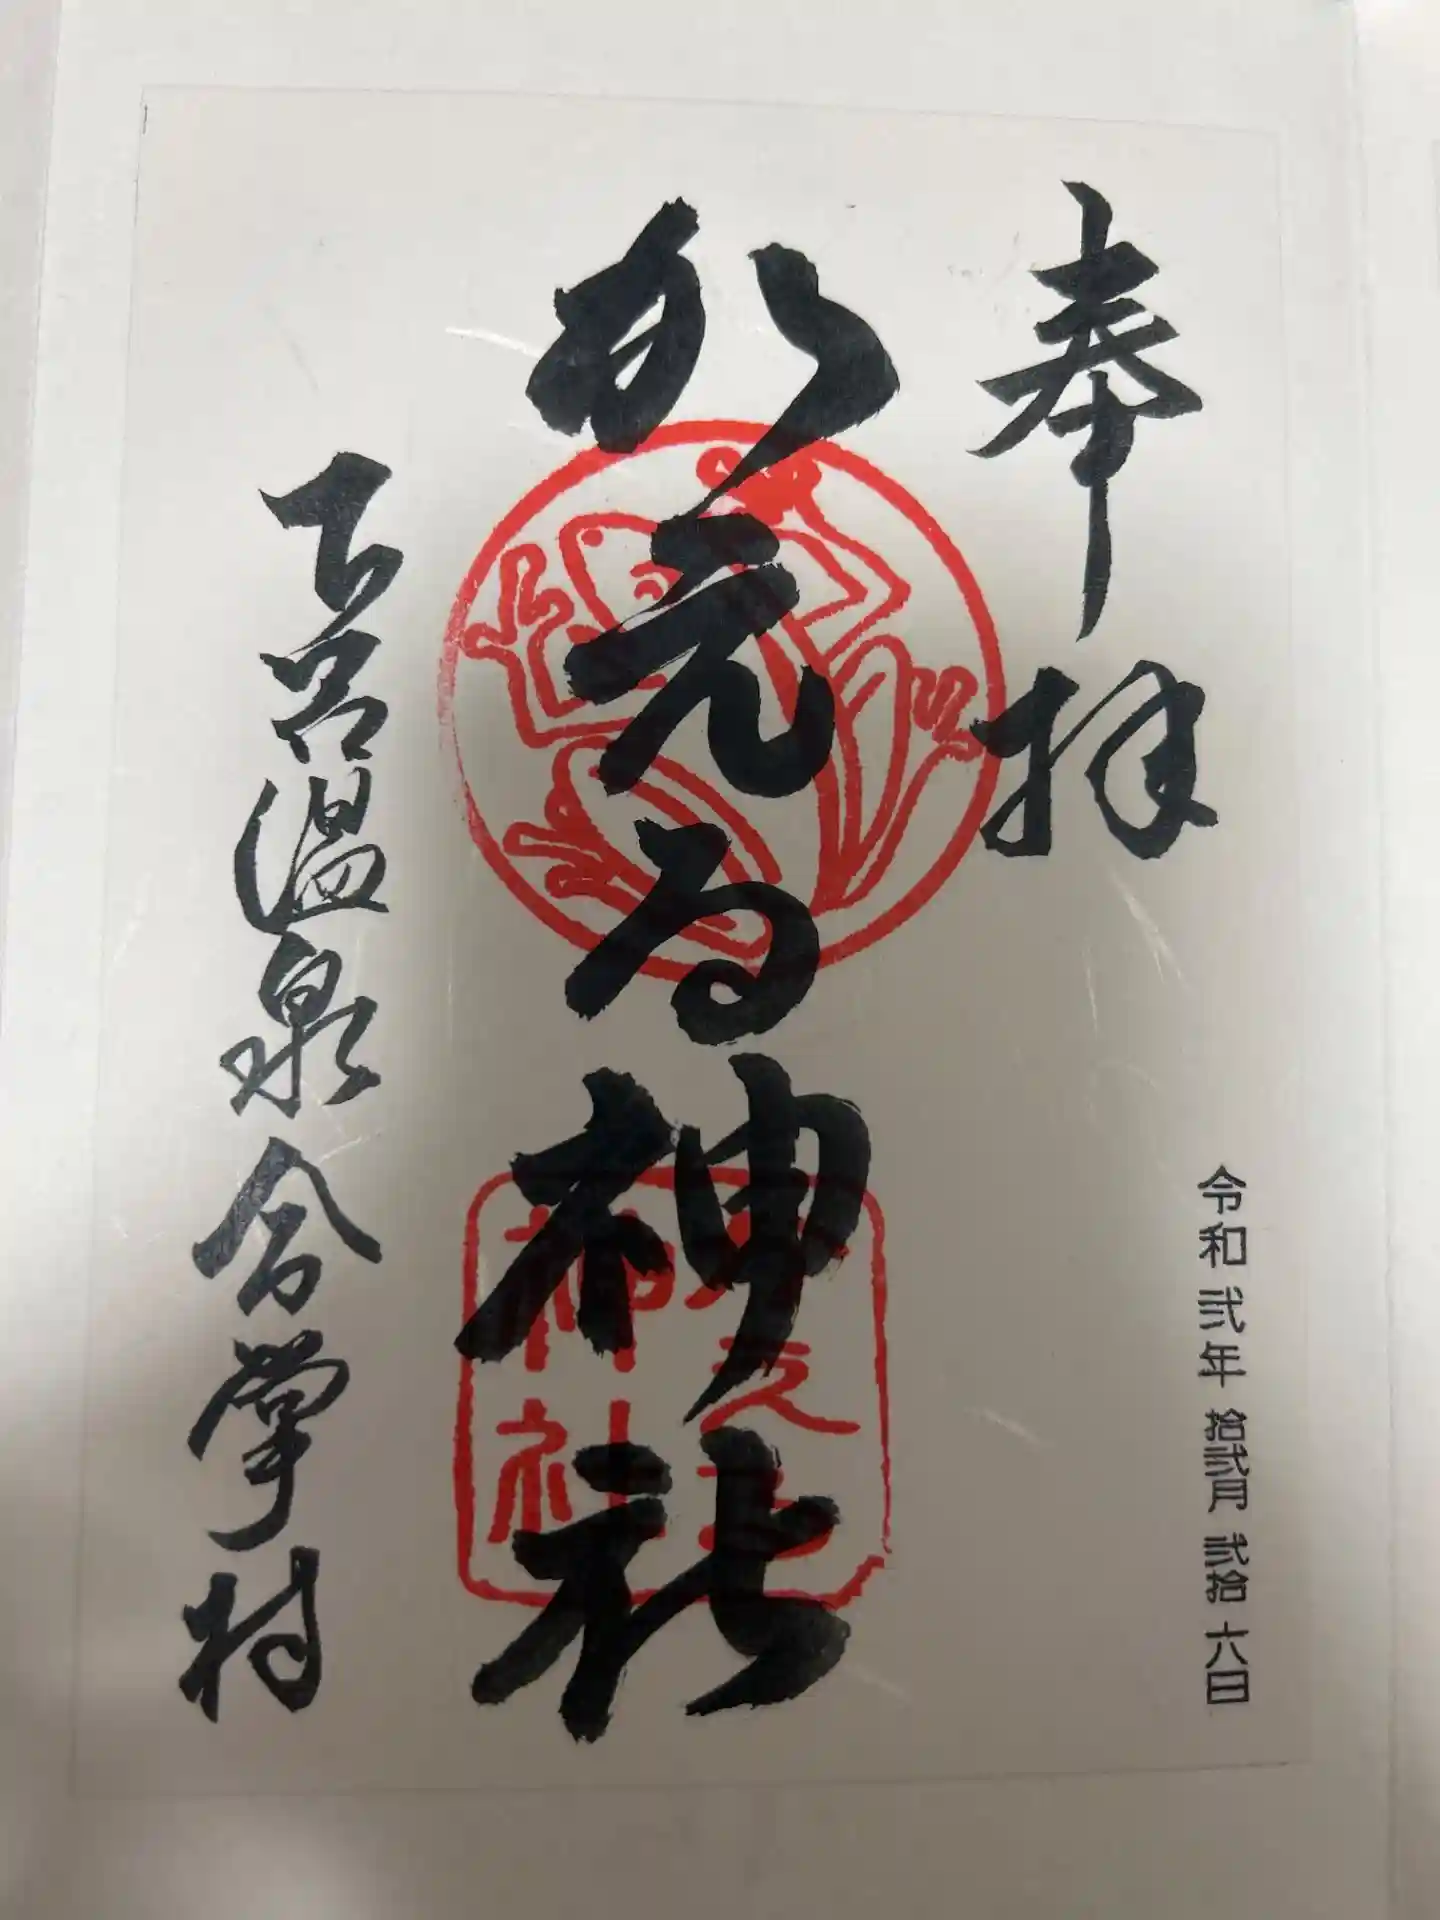 奉拝
令和弐年拾弐月弐拾六日
加元る神社
下呂温泉合掌村